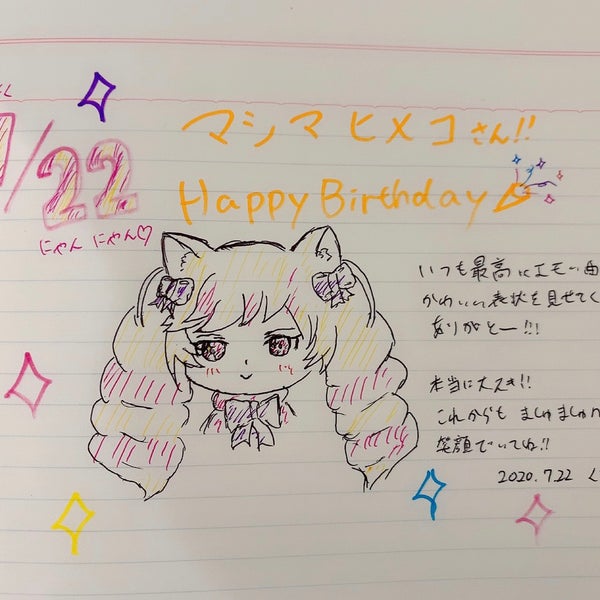 7/22
にゃん にゃん♡
マシマヒメコさん!!
Happy Birthday
いつも最高にエモい曲
かわいい表状を見せてく
ありがとー!!!
本当に大スキ!!
これからも ましゅましゅ
笑顔でいてね!!
2020.7.22